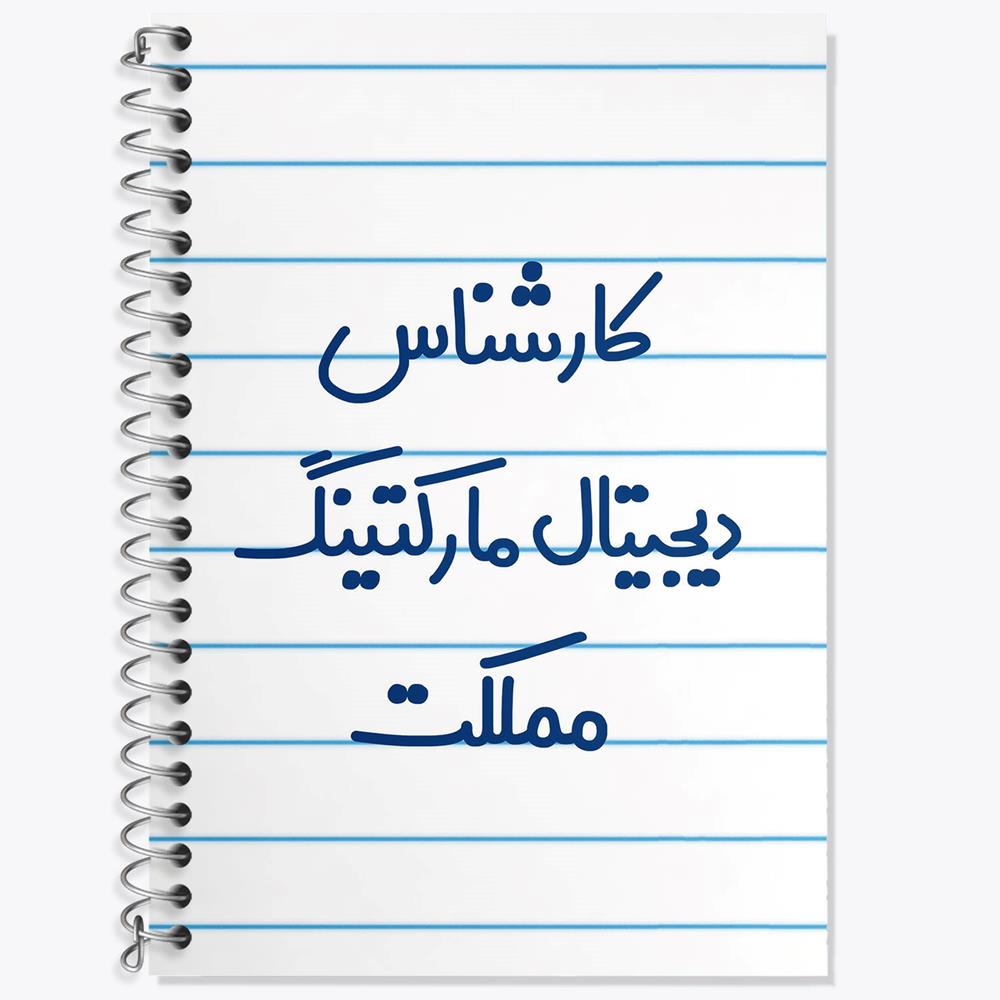 کارشناس
دیجیتال مارکتینگ
مملکت